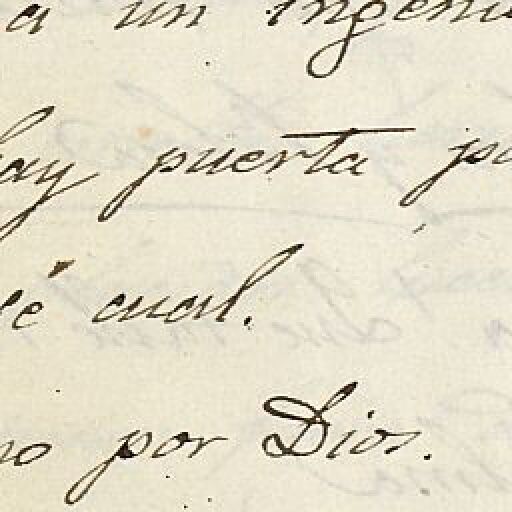 a un ingeni
hay puerta pa
sé cual.
no por Dios.